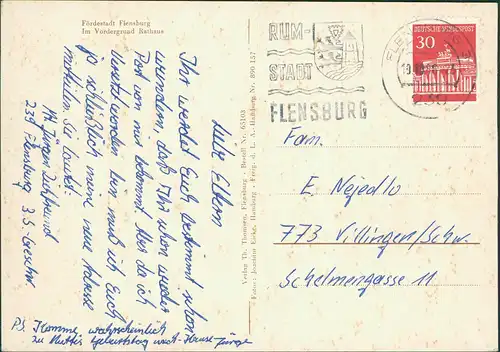 Fördestadt Flensburg
Im Vordergrund Rathaus
RUM-
STADT
FLENSBURG
DEUTSCHE BUNDESPOST
30
Liebe Eltern
Ihr werdet Euch bestimmt schon
wundern, daß Ihr schon wieder
Post von mir bekommt. Aber da ich
versetzt worden bin muß ich Euch
ja schließlich meine neue Adresse
mitteilen. Sie lautet:
Jürgen
239 Flensburg 3.
PS. Komme wahrscheinlich
zu Muttis Geburtstag nach Hause Jürgen
Verlag Th. Thomsen, Flensburg - Bestell Nr. 65103
Fam.
E. Nejedlo
773 Villingen/Schw.
Schelmengasse 11